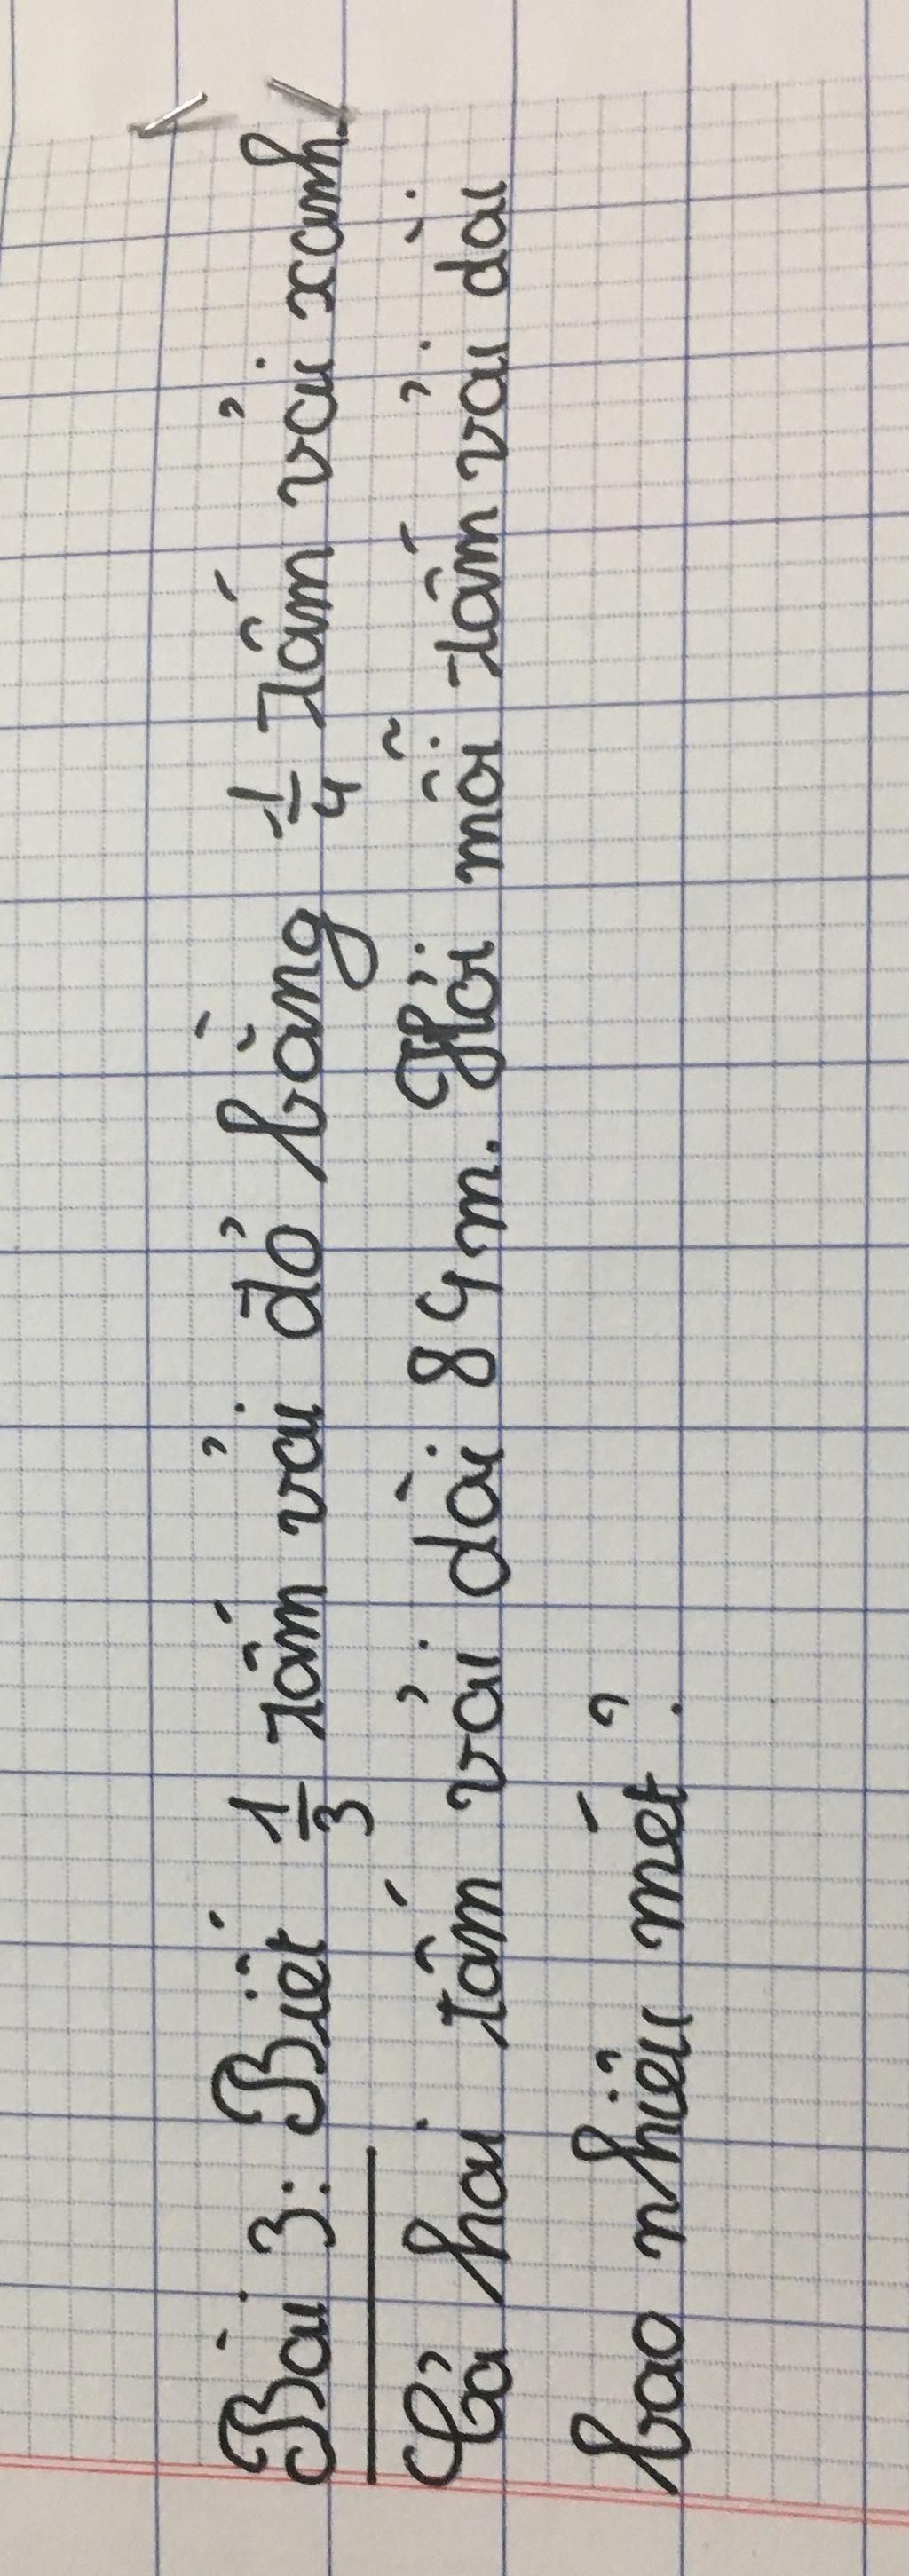 Bài 3: Biết 1/3 tấm vải đỏ bằng 1/4 tấm vải xanh.
Cả hai tấm vải dài 84m. Hỏi mỗi tấm vải dài
bao nhiêu mét?